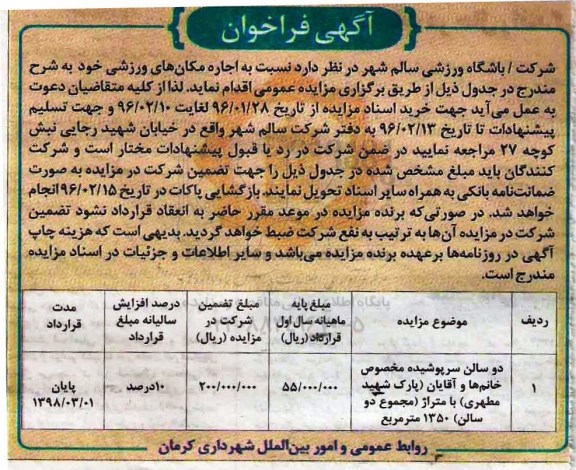 آگهی فراخوان
شرکت / باشگاه ورزشی سالم شهر در نظر دارد نسبت به اجاره مکان‌های ورزشی خود به شرح
مندرج در جدول ذیل از طریق برگزاری مزایده عمومی اقدام نماید. لذا از کلیه متقاضیان دعوت
به عمل می‌آید جهت خرید اسناد مزایده از تاریخ ۹۶/۰۱/۲۸ لغایت ۹۶/۰۲/۱۰ و جهت تسلیم
پیشنهادات تا تاریخ ۹۶/۰۲/۱۳ به دفتر شرکت سالم شهر واقع در خیابان شهید رجایی نبش
کوچه ۲۷ مراجعه نمایید در ضمن شرکت در رد یا قبول پیشنهادات مختار است و شرکت
کنندگان باید مبلغ مشخص شده در جدول ذیل را جهت تضمین شرکت در مزایده به صورت
ضمانت‌نامه بانکی به همراه سایر اسناد تحویل نمایند. بازگشایی پاکات در تاریخ ۹۶/۰۲/۱۵ انجام
خواهد شد. در صورتی‌که برنده مزایده در موعد مقرر حاضر به انعقاد قرارداد نشود تضمین
شرکت در مزایده آن‌ها به ترتیب به نفع شرکت ضبط خواهد گردید. بدیهی است که هزینه چاپ
آگهی در روزنامه‌ها برعهده برنده مزایده می‌باشد و سایر اطلاعات و جزئیات در اسناد مزایده
مندرج است.
ردیف
موضوع مزایده
مبلغ پایه
ماهیانه سال اول
قرارداد (ریال)
مبلغ تضمین
شرکت در
مزایده (ریال)
درصد افزایش
سالیانه مبلغ
قرارداد
مدت
قرارداد
۱
دو سالن سرپوشیده مخصوص
خانم‌ها و آقایان (پارک شهید
مطهری) با متراژ (مجموع دو
سالن) ۱۳۵۰ مترمربع
۵۵/۰۰۰/۰۰۰
۲۰۰/۰۰۰/۰۰۰
۱۰درصد
پایان
۱۳۹۸/۰۳/۰۱
روابط عمومی و امور بین‌الملل شهرداری کرمان